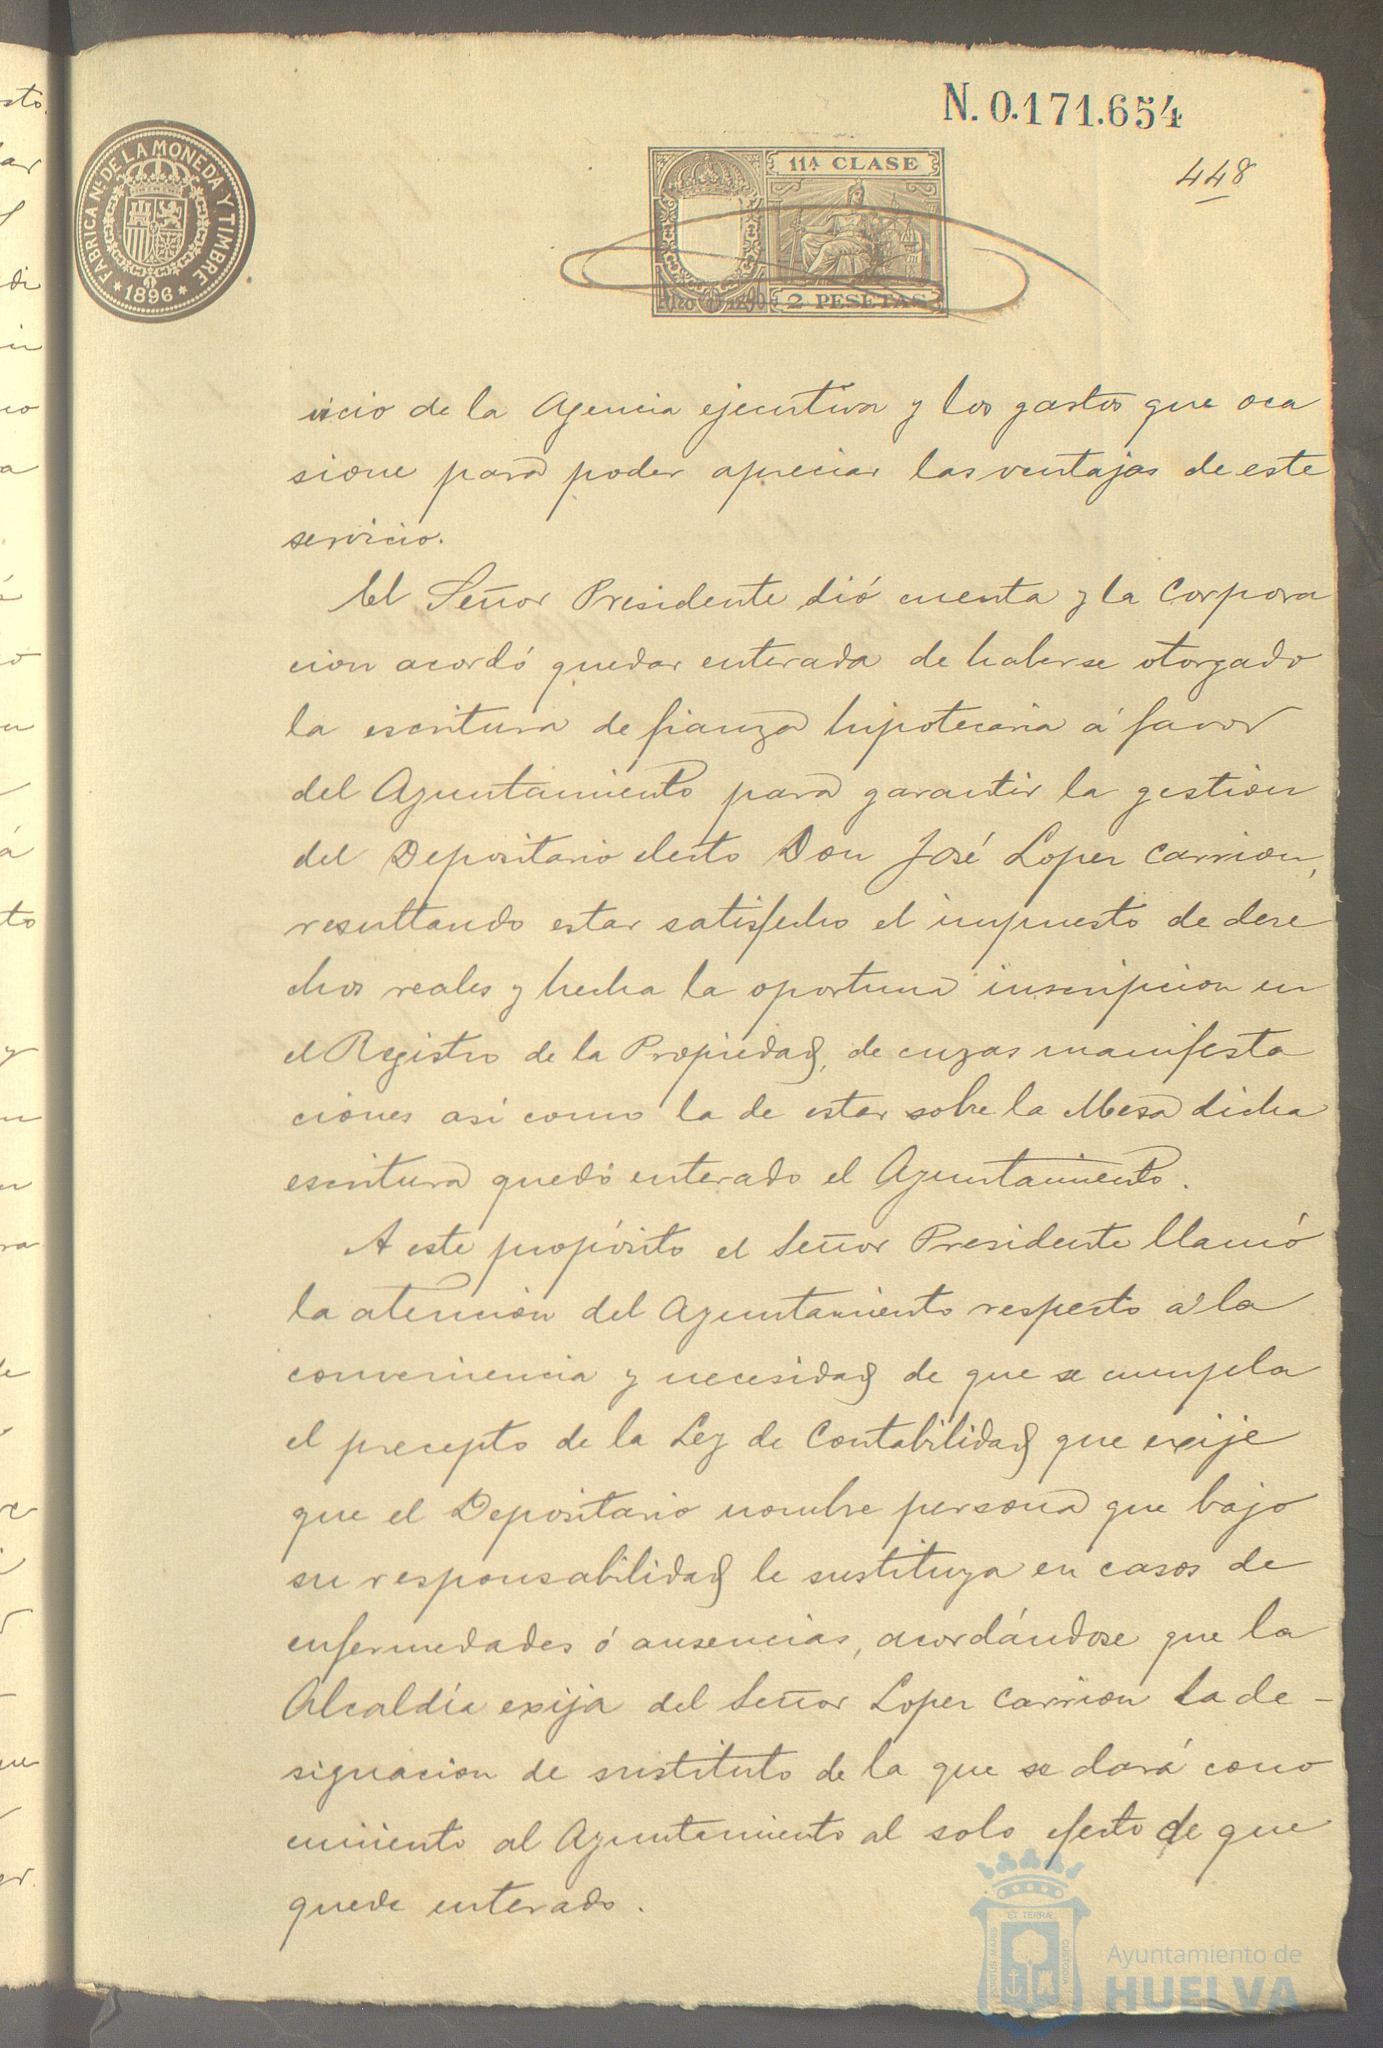 N. 0.171.654
448
FABRICA Nal DE LA MONEDA Y TIMBRE
* 1896 *
11ª CLASE
2 PESETAS
vicio de la Agencia ejecutiva y los gastos que oca
sione para poder apreciar las ventajas de este
servicio.
El Señor Presidente dió cuenta y la Corpora
cion acordó quedar enterada de haberse otorgado
la escritura de fianza hipotecaria á favor
del Ayuntamiento para garantir la gestion
del Depositario electo Don José Lopez Carrion,
resultando estar satisfecho el impuesto de dere
chos reales y hecha la oportuna inscripcion en
el Registro de la Propiedad, de cuyas manifesta
ciones asi como la de estar sobre la Mesa dicha
escritura quedó enterado el Ayuntamiento.
A este propósito el Señor Presidente llamó
la atencion del Ayuntamiento respecto á la
conveniencia y necesidad de que se cumpla
el precepto de la Ley de Contabilidad que exije
que el Depositario nombre persona que bajo
su responsabilidad le sustituya en casos de
enfermedades ó ausencias, acordándose que la
Alcaldía exija del Señor Lopez Carrion la de-
signacion de sustituto de la que se dará cono
cimiento al Ayuntamiento al solo efecto de que
quede enterado.
Ayuntamiento de
HUELVA